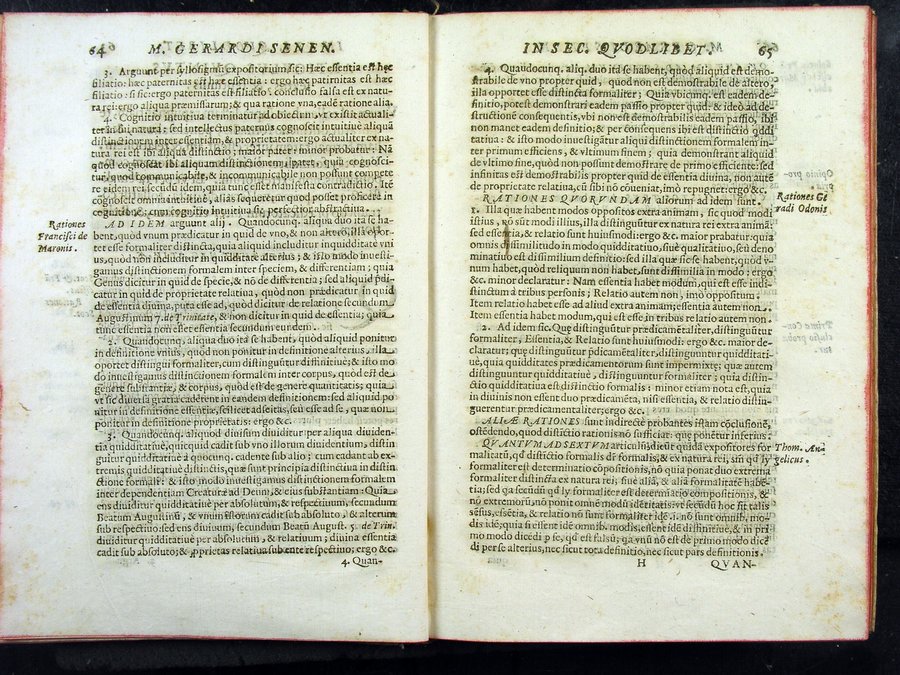 64 M. GERARDI SENEN.
3. Arguunt per syllogismū expositorium sic: Hæc essentia est hęc
filiatio: hæc paternitas est hæc essentia: ergo hæc paternitas est hæc
filiatio: si sic: ergo paternitas est filiatio: conclusio falsa est ex natu-
ra rei: ergo aliqua præmissarum; & qua ratione vna, eadē ratione alia.
4. Cognitio intuitiua terminatur ad obiectum, vt existit actuali-
ter in rei natura: sed intellectus paternus cognoscit intuitiuè aliquā
distinctionem inter essentiam, & proprietatem: ergo actualiter ex na-
tura rei est ibi aliqua distinctio; maior patet: minor probatur: Nā
quòd cognoscat ibi aliquam distinctionem, patet, quia cognosci-
tur, quòd communicabile, & incommunicabile non possunt compete
re eidem rei secūdū idem, quia tunc esset manifesta contradictio. Itē
cognoscit omnia intuitiuè, alias sequeretur quod posset proficere in
cognitione, cum cognitio intuitiua sit perfectior abstractiua.
AD IDEM arguunt alij. Quandocunq. aliqua duo ita se ha-
bent, quòd vnum prædicatur in quid de vno, & non altero, illa opor-
tet esse formaliter distincta, quia aliquid includitur in quidditate vni
us, quod non includitur in quidditate alterius; & isto modo inuesti-
gamus distinctionem formalem inter speciem, & differentiam; quia
Genus dicitur in quid de specie, & nō de differentia; sed aliquid prædi-
catur in quid de proprietate relatiua, quod non prædicatur in quid
de essentia diuina, puta esse ad, quod dicitur de relatione secundum
Augustinum 7. de Trinitate, & non dicitur in quid de essentia; quia
tunc essentia non esset essentia secundum eundem.
2. Quandocunq. aliqua duo ita se habent, quòd aliquid ponitur
in definitione vnius, quòd non ponitur in definitione alterius, illa
oportet distingui formaliter, cum distinguātur diffinitiuè; & isto mo
do inuestigamus distinctionem formalem inter corpus, quòd est de
genere substantiæ, & corpus, quòd est de genere quantitatis; quia
vt sic diuersa gratia caderent in eandem definitionem: sed aliquid po
nitur in definitione essentiæ, scilicet adseitas, seu esse ad se, quæ non
ponitur in definitione proprietatis: ergo &c.
3. Quandocunq. aliquod diuisum diuiditur per aliqua diuidentia
quidditatiuè, quicquid cadit sub vno illorum diuidentium, distin
guitur quidditatiuè à quocunq. cadente sub alio; cum cadant ab ex-
tremis quidditatiuè distinctis, quæ sunt principia distinctiua in distin
ctione formali: & isto modo inuestigamus distinctionem formalem
inter dependentiam Creaturæ ad Deum, & eius substantiam: Quia
ens diuiditur quidditatiuè per absolutum, & respectiuum, secundum
Beatum Augustinū, & vnum istorum cadit sub absoluto, & alterum
sub respectiuo: sed ens diuisum, secundum Beatū August. 5. de Trin.
diuiditur quidditatiuè per absolutum, & relatiuum; diuina essentia
cadit sub absoluto; & proprietas relatiua sub ente respectiuo; ergo &c.
4. Quan-
Rationes
Francisci de
Maronis.
IN SEC. QVODLIBET. 65
4. Quandocunq. aliq. duo ita se habent, quòd aliquid est demo-
strabile de vno propter quid, quod non est demostrabile de altero,
illa opportet esse distincta formaliter; Quia vbicunq. est eadem de-
finitio, potest demonstrari eadem passio propter quid: & ideò ad de-
structionē consequentis, vbi non est demostrabilis eadem passio, ibi
non manet eadem definitio; & per consequens ibi est distinctio qddi
tatiua: & isto modo inuestigātur aliqui distinctionem formalem in-
ter primum efficiens, & vltimum finem; quia demonstrant aliquid
de vltimo fine, quòd non possunt demostrare de primo efficiente: sed
infinitas est demostrabilis propter quid de essentia diuina, non autē
de proprietate relatiua, cū sibi nō cōueniat, imò repugnet: ergo &c.
RATIONES QVORVNDAM aliorum ad idem sunt.
1. Illa quæ habent modos oppositos extra animam, sic quod modi
istius, nō sūt modi illius, illa distinguūtur ex natura rei extra animā:
sed essētia, & relatio sunt huiusmodi: ergo &c. maior probatur: quia
omnis dissimilitudo in modo quidditatiuo, siuè qualitatiuo, seu deno
minatiuo est dissimilium definitio: sed illa quæ sic se habent, quòd v-
num habet, quòd reliquum non habet, sunt dissimilia in modo: ergo
&c. minor declaratur: Nam essentia habet modum, qui est esse indi-
stinctum à tribus personis; Relatio autem non, imò oppositum.
Item relatio habet esse ad aliud extra animam; essentia autem non.
Item essentia habet modum, qui est esse in tribus relatio autem non.
2. Ad idem sic. Quę distinguūtur prædicamētaliter, distinguūtur
formaliter, Essentia, & Relatio sunt huiusmodi: ergo &c. maior de-
claratur; quę distinguūtur pdicamētaliter, distinguuntur quidditati-
uè, quia quidditates prædicamentorum sunt impermixtę; quæ autem
distinguuntur quidditatiuè, distinguuntur formaliter; quia distin-
ctio quidditatiua est distinctio formalis: minor etiam nota est, quia
in diuinis non essent duo prædicamēta, nisi essentia, & relatio distin-
guerentur prædicamentaliter; ergo &c.
ALIÆ RATIONES sunt indirectè probantes istam cōclusionē,
ostēdendo, quòd distictio rationis nō sufficiat: quę ponētur inferius.
QVANTVM AD SEXTVM articulū dicūt quidā expositores for
malitatū, qd distictio formalis dr̄ formalis, & ex natura rei, sin qd ly
formaliter est determinatio cōpositionis, nō quia ponat duo extrema
formaliter distincta ex natura rei, siue aliā, & aliā formalitatē habē-
tia; sed ga secūdū qd ly formaliter est determiatio compositionis, &
nō extremorū, nō ponit omnē modū idētitatis: vt secūdū hoc sit talis
sēsus, essētia, & relatio nō sunt formaliter idē .i. nō sunt omnib. mo-
dis idē; quia si essent idē omnib. modis, essent idē diffinitiuè, & in pri
mo modo dicēdi p se, qd est falsū; qa vnū nō est de primo modo dicē
di per se alterius, nec sicut tota definitio, nec sicut pars definitionis.
H QVAN-
Rationes Ge
radi Odonis
Thom. An-
gelicus.